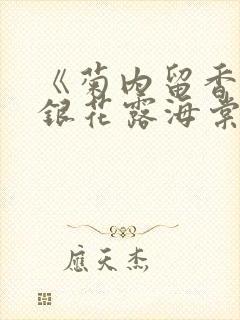 《菊内留香
银花露海棠
应天杰